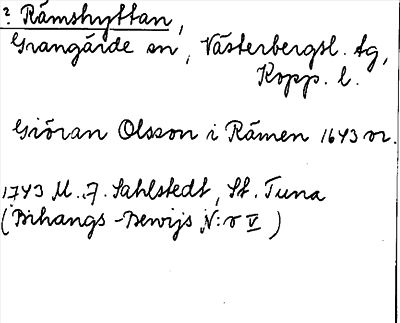 ? Rämshyttan,
Grangärde sn, Västerbergsl. tg,
Kopp. l.
Giöran Olsson i Rämen 1643 or.
1743 M. J. Sahlstedt, St. Tuna
(Bihangs-Bewijs N:o V)